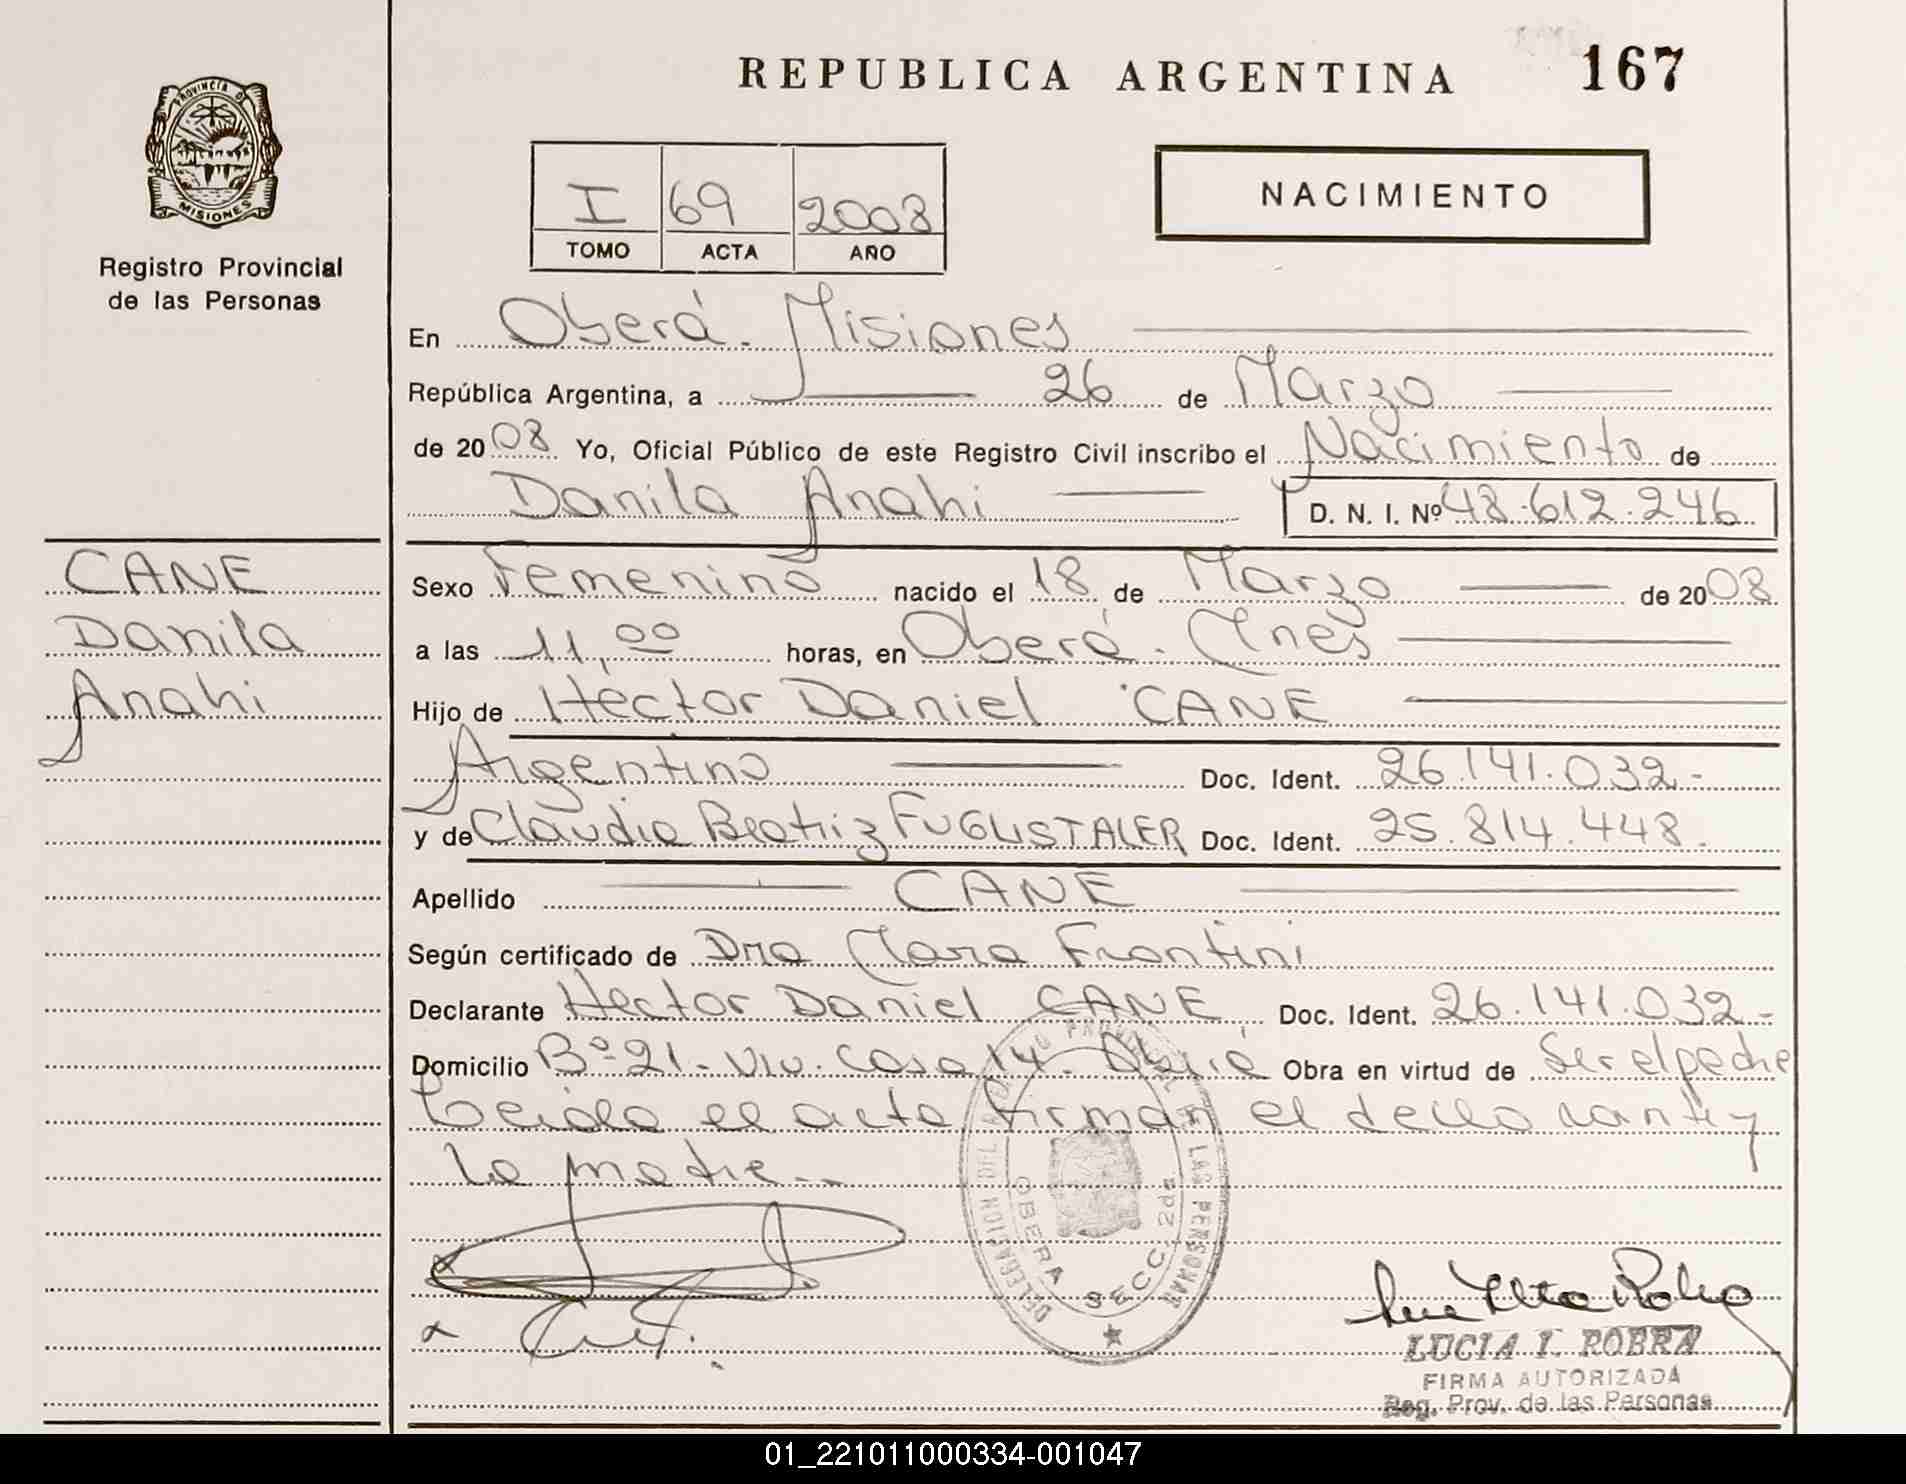 REPUBLICA ARGENTINA
167
PROVINCIA D
MISIONES
Registro Provincial
de las Personas
I 69 2008
TOMO ACTA AÑO
NACIMIENTO
En Oberá. Misiones
República Argentina, a 26 de Marzo
de 2008 Yo, Oficial Público de este Registro Civil inscribo el Nacimiento de
Danila Anahi D. N. I. Nº 48.612.246
CANE
Danila
Anahi
Sexo Femenino nacido el 18 de Marzo de 2008
a las 11,00 horas, en Oberá. Mnes
Hijo de Hector Daniel CANE
Argentino Doc. Ident. 26.141.032.-
y de Claudia Beatriz FUGLISTALER Doc. Ident. 25.814.448.
Apellido CANE
Según certificado de Dra Clara Frontini
Declarante Hector Daniel CANE, Doc. Ident. 26.141.032.-
Domicilio Bº 21. Viv. Casa 14. Oberá Obra en virtud de Ser el padre
Leida el acta firman el declarante y
la madre..
DELEGACION DEL REGISTRO PROVINCIAL DE LAS PERSONAS
OBERA SECC. 2da
LUCIA I. ROBRA
FIRMA AUTORIZADA
Reg. Prov. de las Personas
01_221011000334-001047